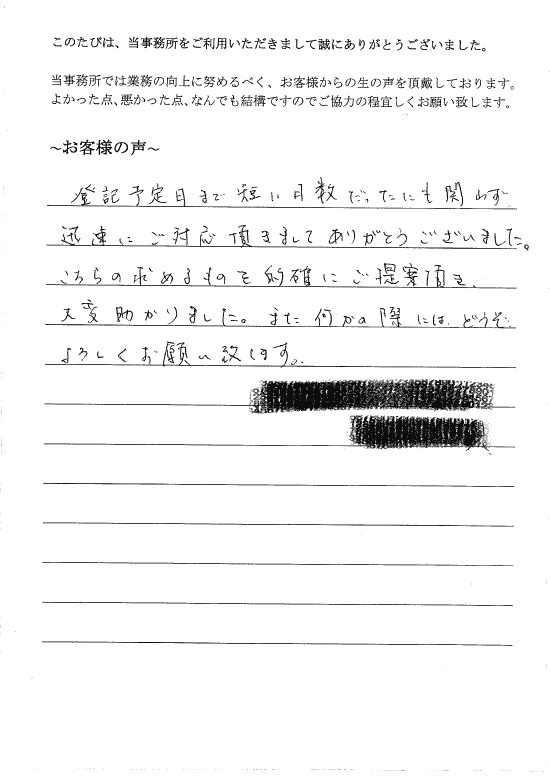 このたびは、当事務所をご利用いただきまして誠にありがとうございました。
当事務所では業務の向上に努めるべく、お客様からの生の声を頂戴しております。
よかった点、悪かった点、なんでも結構ですのでご協力の程宜しくお願い致します。
~お客様の声~
登記予定日まで短い日数だったにも関わらず
迅速にご対応頂きましてありがとうございました。
こちらの求めるものを的確にご提案頂き、
大変助かりました。また何かの際には、どうぞ
よろしくお願い致します。